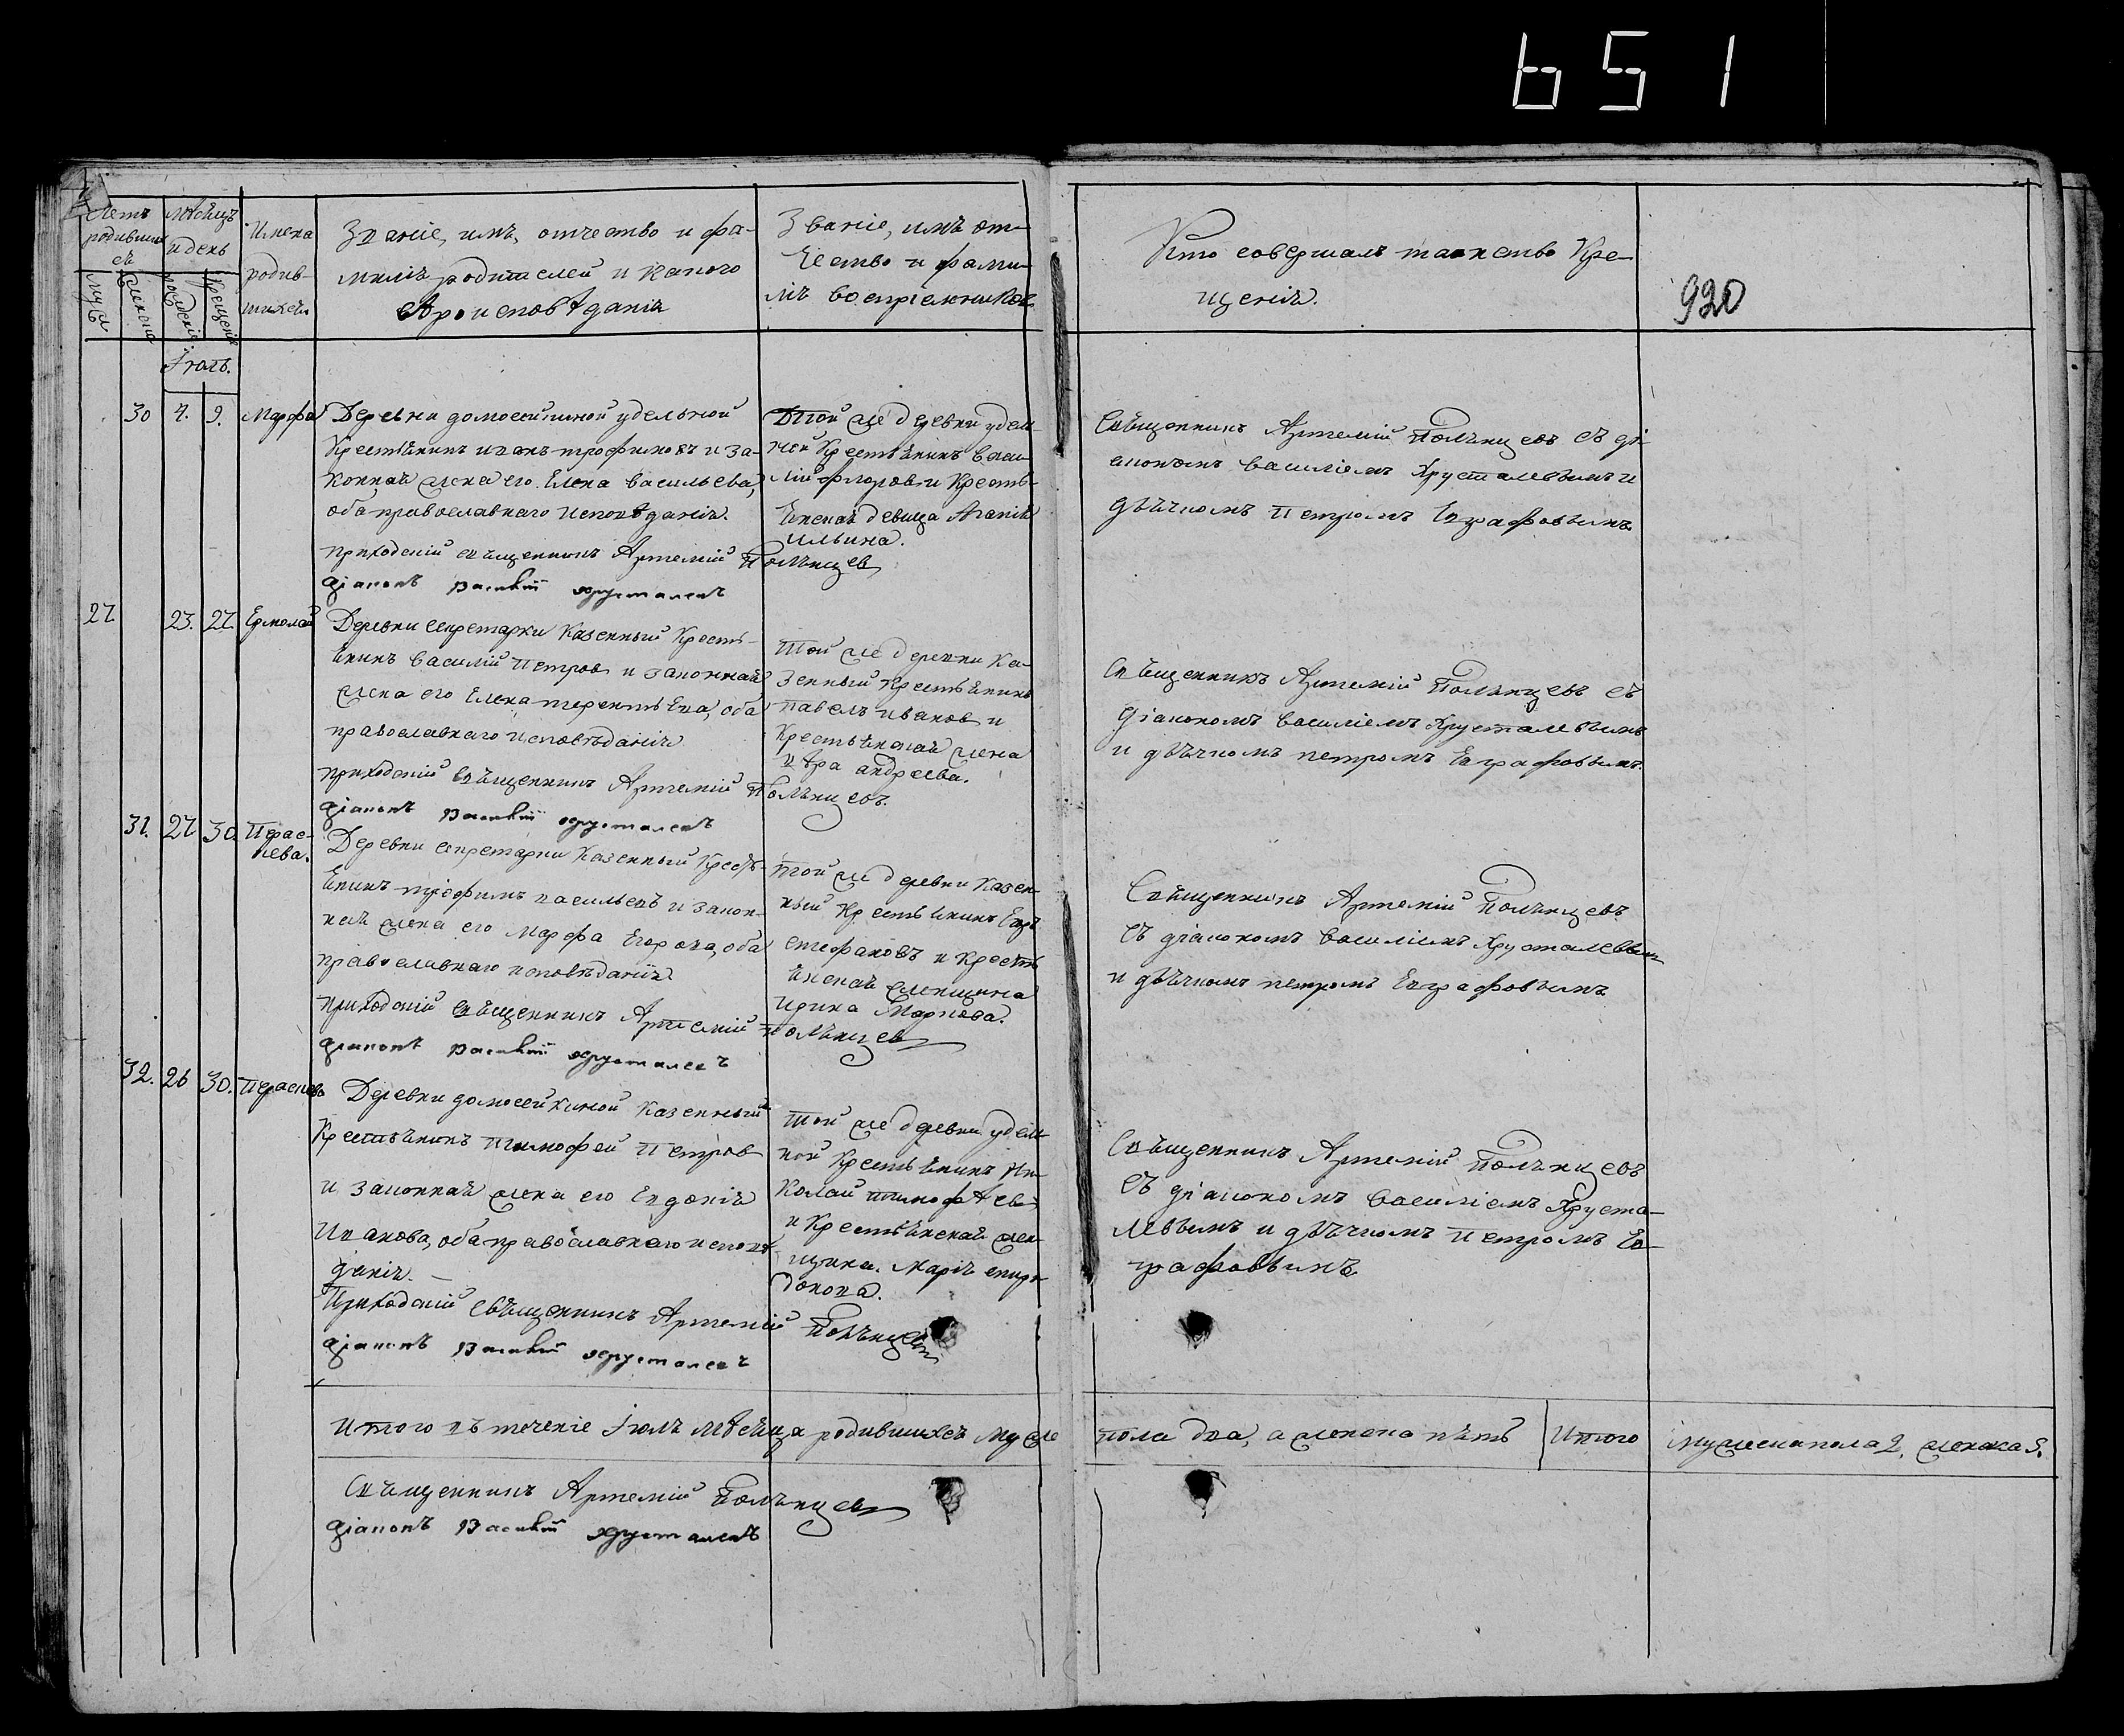 651
Счетъ родившихся
Мѣсяцъ и день
Имена родившихся
мужеска
женска
рожденія
крещенія
Званіе, имя, отчество и фа-
милія родителей и какого
вѣроисповѣданія
Званіе, имя от-
чество и фами-
лія воспріемниковъ
Кто совершалъ таинство Кре-
щенія.
920
Іюль.
30 4. 9. Марфа
Деревни домосейкиной удельной
Крестьянинъ иванъ трофимовъ и за-
конная жена его Елена васильева,
оба православнаго исповѣданія.
приходскій священникъ Артемій Полянцев
діаконъ Василій хрусталевъ
Той же деревни удель-
ной Крестьянинъ васи-
лій флоровъ и Кресть-
янская девица
ильина.
Священникъ Артемій Полянцевъ съ ді-
акономъ василіемъ Хрусталевымъ и
дьячкомъ Петромъ Евграфовымъ
27 23. 27. Ермолай
Деревни секретарки Казенный Кресть-
янинъ василій Петров и законная
жена его Елена терентьева, оба
православнаго исповѣданія
приходскій священникъ Артемій Полянцевъ.
діаконъ Василій хрусталевъ
Той же деревни Ка-
зенный Крестьянинъ
павелъ иванов и
Крестьянская жена
вѣра андреева.
Священникъ Артемій Полянцевъ съ
діакономъ василіемъ Хрусталевымъ
и дьячкомъ петромъ Евграфовымъ.
31. 27 30. Праско-
вева.
Деревни секретарки Казенный Кресть-
янинъ трофимъ васильевъ и закон-
ная жена его Марфа Егорова, оба
православнаго исповѣданія
приходскій священникъ Артемій Полянцев
діаконъ Василій хрусталевъ
той же деревни Казен-
ный Крестьянинъ Егоръ
стефановъ и Кресть-
янская женщина
ирина Маркова.
Священникъ Артемій Полянцевъ
съ діакономъ василіемъ Хрусталевымъ
и дьячкомъ петромъ Евграфовымъ
32. 26 30. Прасковева
Деревни домосейкиной Казенный
Крестьянинъ тимофей Петров
и законная жена его Евдокія
Иванова, оба православнаго исповѣ-
данія. —
Приходскій священникъ Артемій Полянцевъ
діаконъ Василій хрусталевъ
той же деревни удель-
ной Крестьянинъ Ни-
колай тимофѣевъ
и Крестьянская жен-
щина. Марія спири-
донова.
Священникъ Артемій Полянцевъ
съ діакономъ василіемъ Хруста-
левымъ и дьячкомъ Петромъ Ев-
графовымъ
Итого въ теченіе Іюля мѣсяца родившихся муже пола два, а женска пять Итого мужеска пола 2, женска 5.
Священникъ Артемій Полянцев
діаконъ Василій хрусталевъ